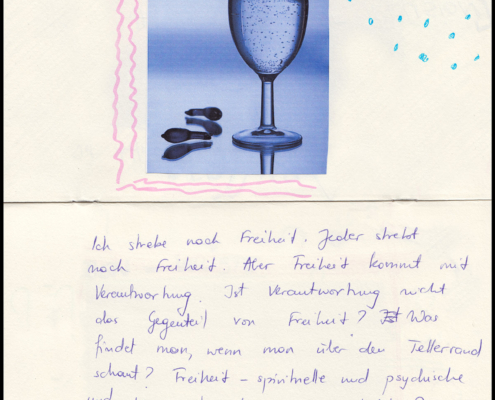 Ich strebe nach Freiheit. Jeder strebt
nach Freiheit. Aber Freiheit kommt mit
Verantwortung. Ist Verantwortung nicht
das Gegenteil von Freiheit? Was
findet man, wenn man über den Tellerrand
schaut? Freiheit – spirituelle und psychische
und